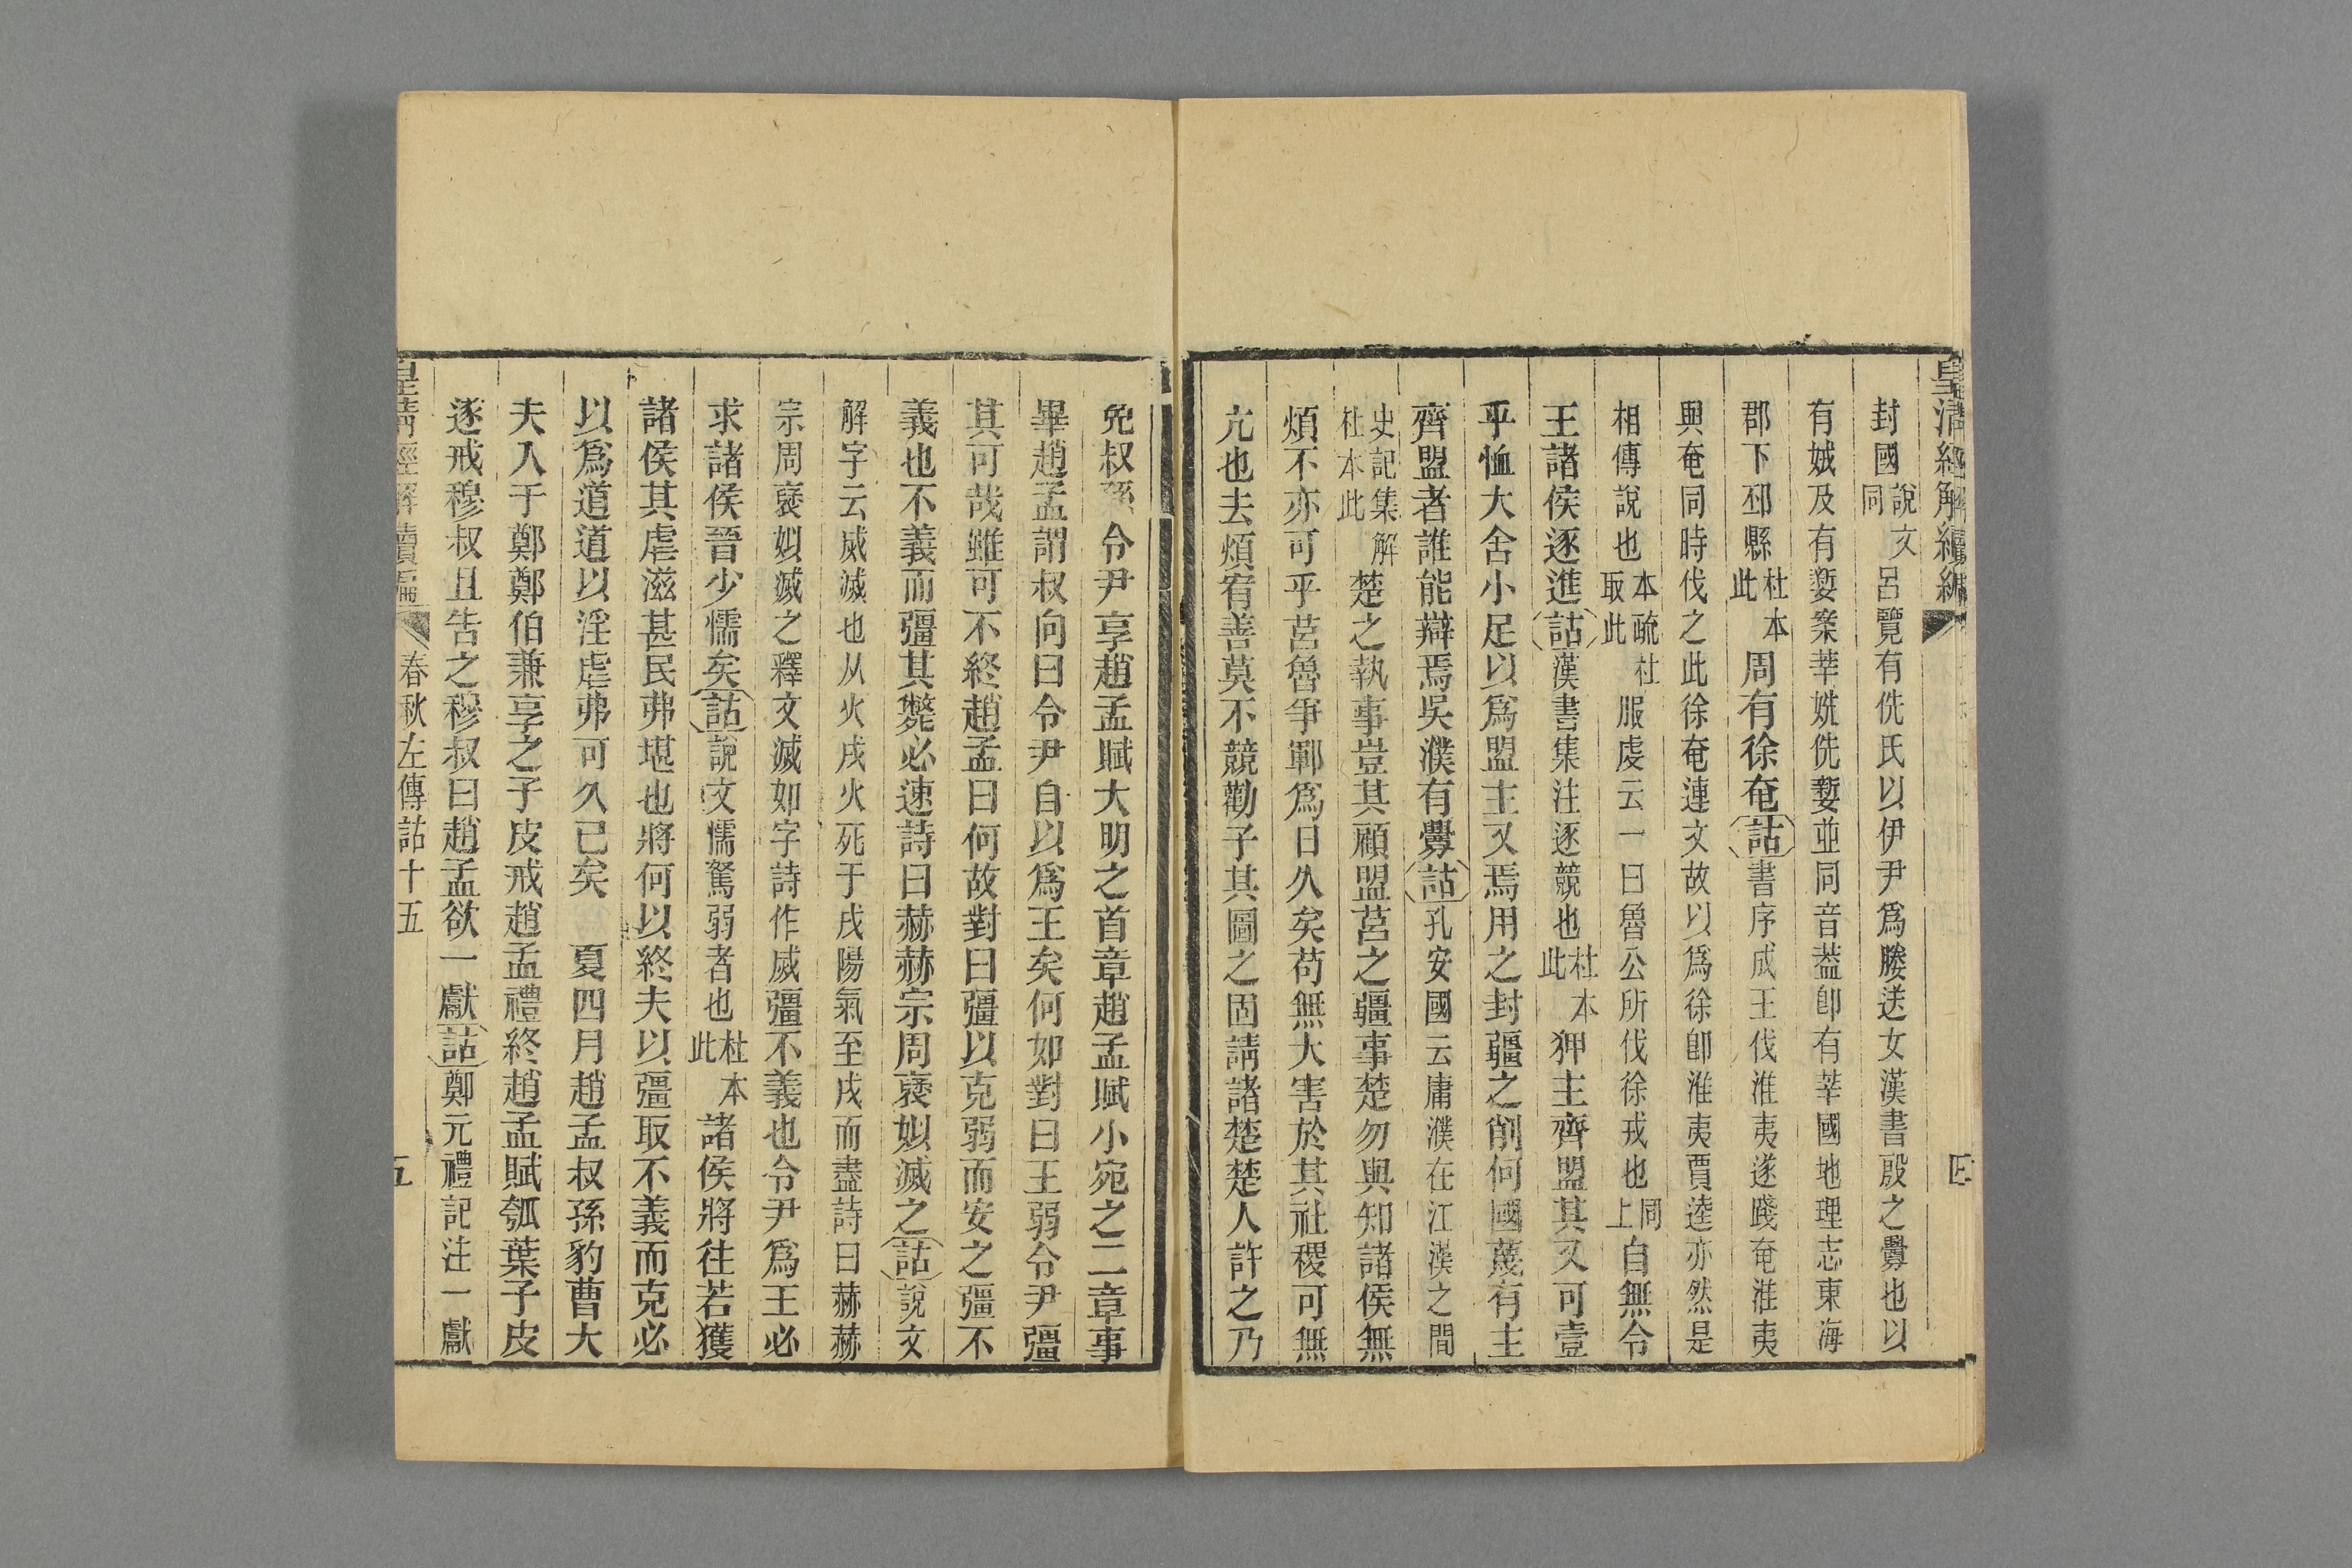 皇清經解續編
封國說文同呂覽有侁氏以伊尹爲媵送女漢書殷之釁也以
有娀及有㜪案莘姺侁㜪並同音葢卽有莘國地理志東海
郡下邳縣杜本此周有徐奄詁書序成王伐淮夷遂踐奄淮夷
與奄同時伐之此徐奄連文故以爲徐卽淮夷賈逵亦然是
相傳說也本疏杜取此服虔云一曰魯公所伐徐戎也同上自無令
王諸侯逐進詁漢書集注逐競也杜本此狎主齊盟其又可壹
乎恤大舍小足以爲盟主又焉用之封疆之削何國蔑有主
齊盟者誰能辯焉吳濮有釁詁孔安國云庸濮在江漢之間
史記集解杜本此楚之執事豈其顧盟莒之疆事楚勿與知諸侯無
煩不亦可乎莒魯爭鄆爲日久矣苟無大害於其社稷可無
亢也去煩宥善莫不競勸子其圖之固請諸楚楚人許之乃
免叔孫令尹享趙孟賦大明之首章趙孟賦小宛之二章事
畢趙孟謂叔向曰令尹自以爲王矣何如對曰王弱令尹彊
其可哉雖可不終趙孟曰何故對曰彊以克弱而安之彊不
義也不義而彊其斃必速詩曰赫赫宗周襃姒滅之詁說文
解字云烕滅也从火戌火死于戌陽氣至戌而盡詩曰赫赫
宗周襃姒滅之釋文滅如字詩作烕彊不義也令尹爲王必
求諸侯晉少懦矣詁說文懦駑弱者也杜本此諸侯將往若獲
諸侯其虐滋甚民弗堪也將何以終夫以彊取不義而克必
以爲道道以淫虐弗可久已矣　夏四月趙孟叔孫豹曹大
夫入于鄭鄭伯兼享之子皮戒趙孟禮終趙孟賦瓠葉子皮
遂戒穆叔且告之穆叔曰趙孟欲一獻詁鄭元禮記注一獻
皇清經解續編 春秋左傳詁十五 五